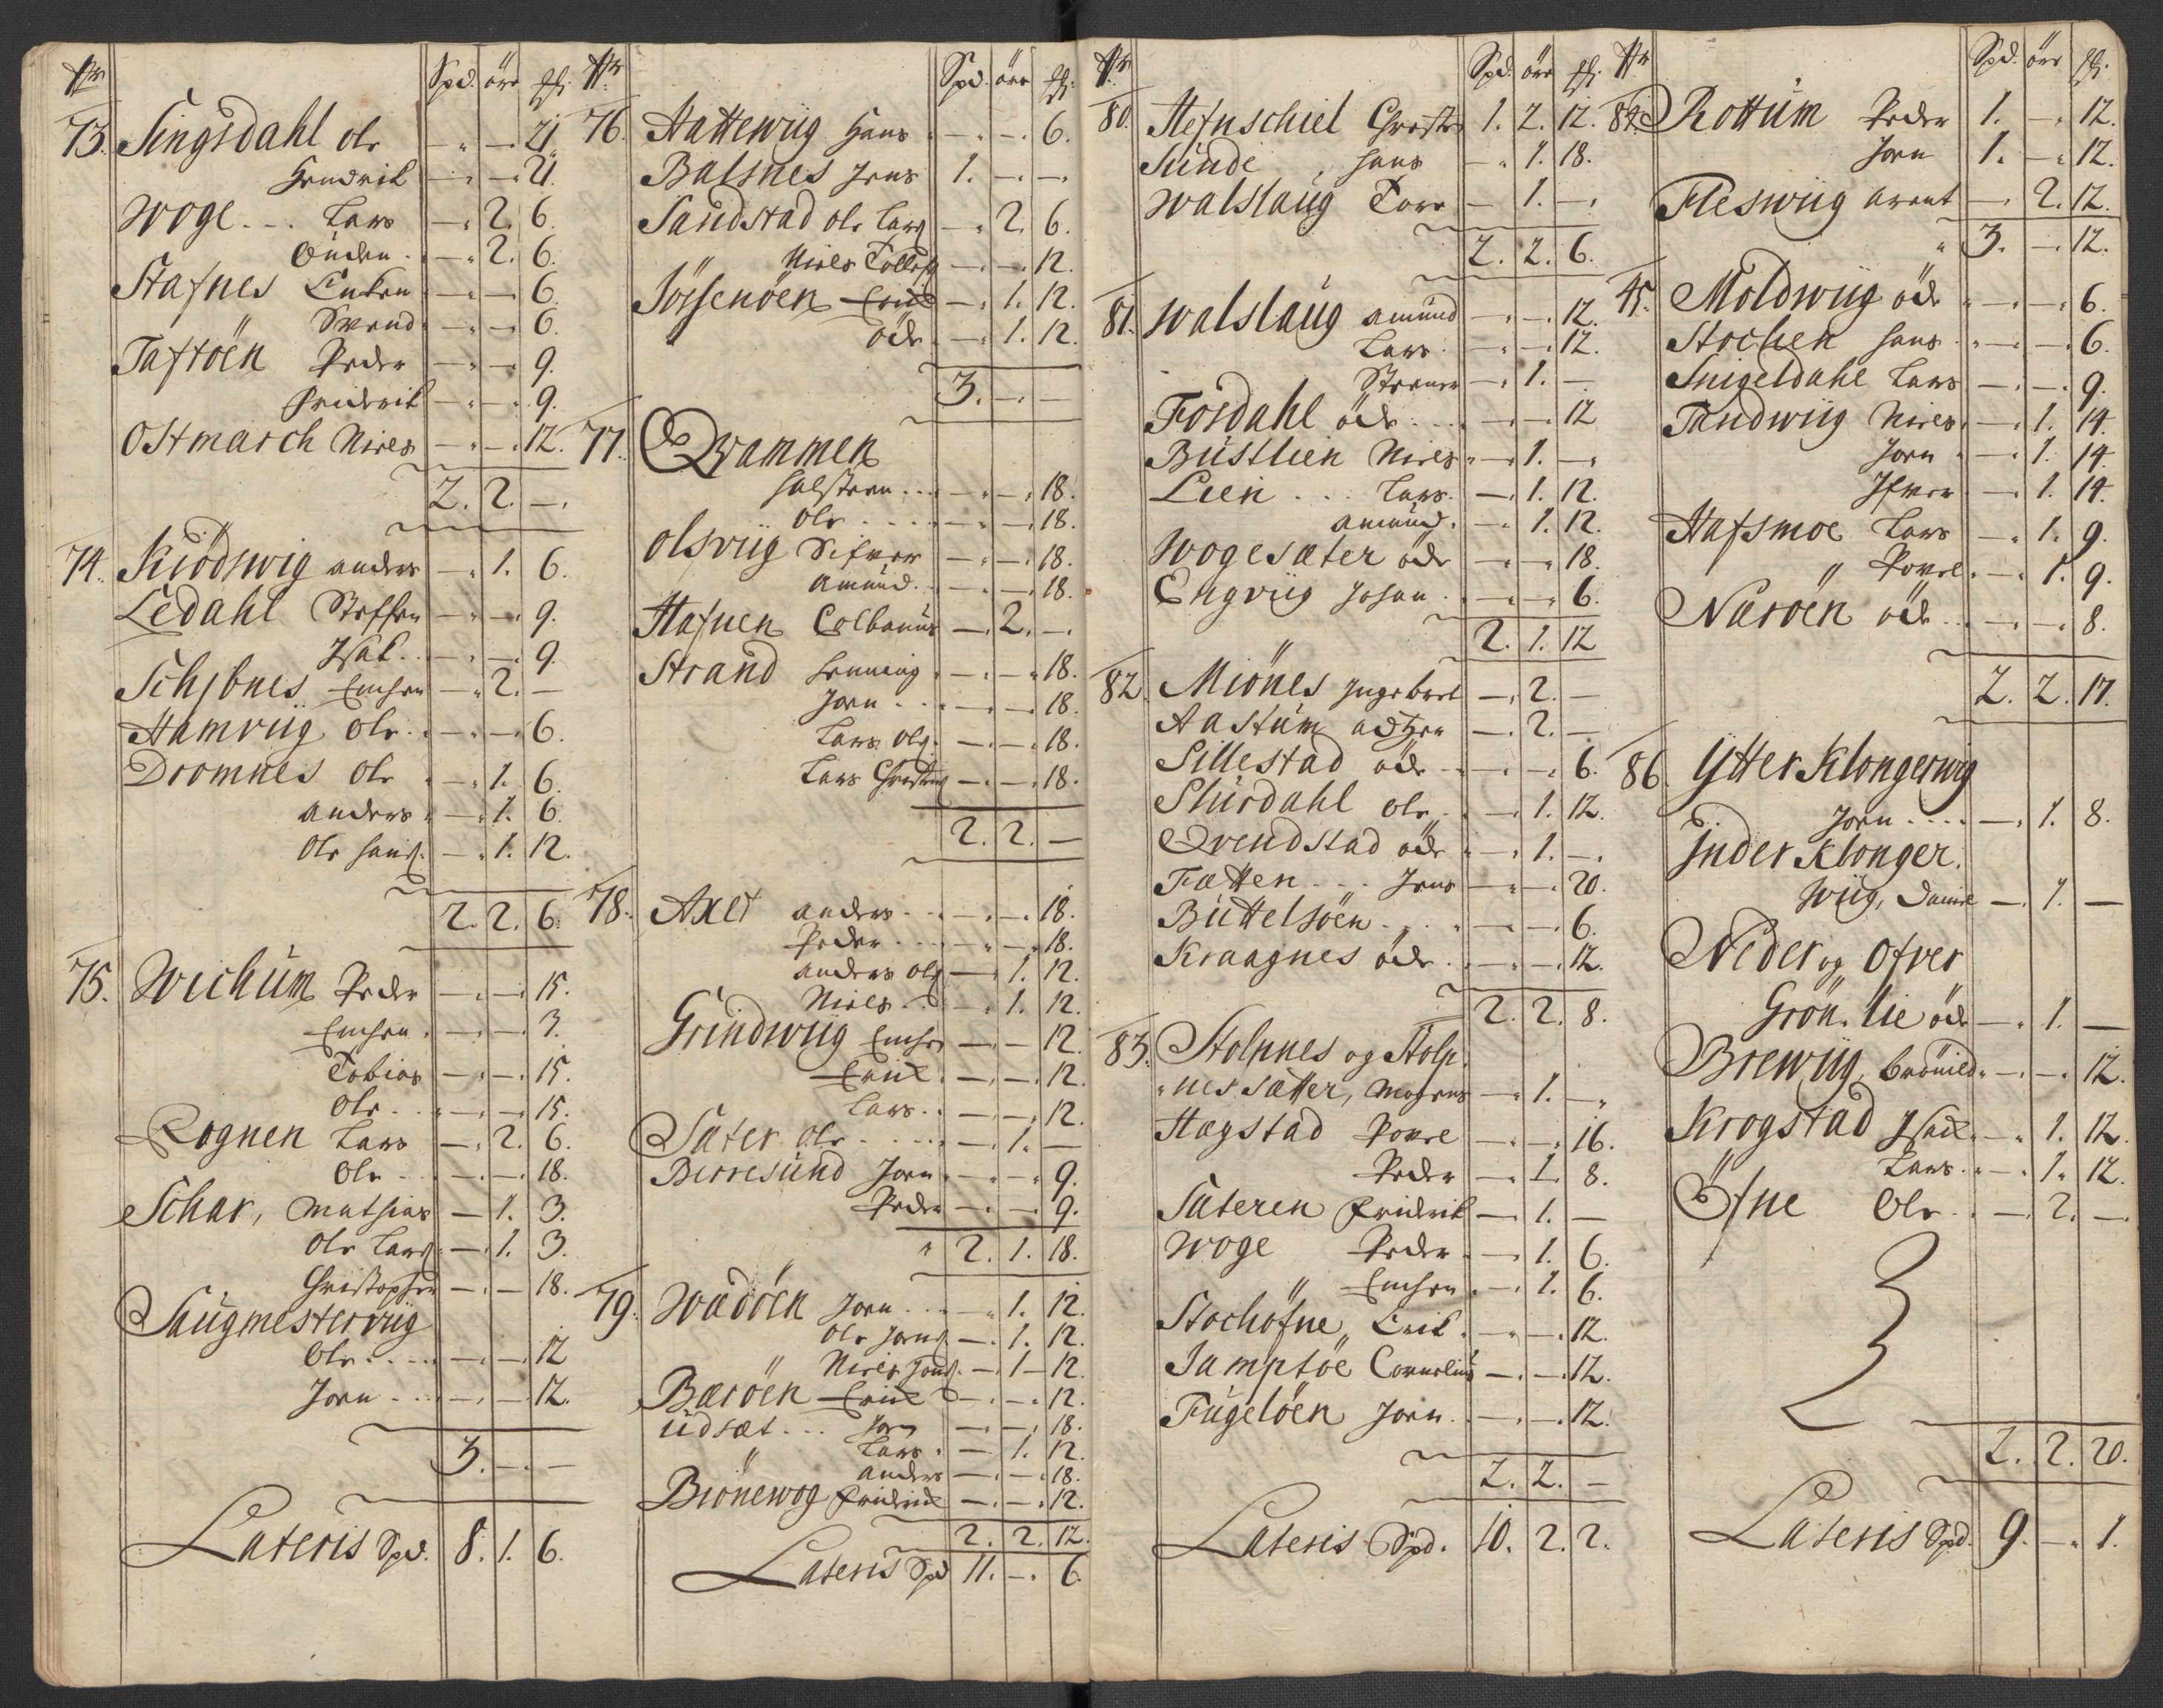 No Spd. öre ß.
73. Singsdahl Ole - - 21.
Hendrik - - 21.
Woge Lars - 2. 6.
Önden - 2. 6.
Stafnes Enken - - 6.
Svend - - 6.
Taftöen Peder - - 9.
Fridrik - - 9.
Ostmarch Niels - - 12.
2. 2. -
74. Kiödswig anders - 1. 6.
Ledahl Steffen - - 9.
Isak - - 9.
Schibnes Einchen - 2. -
Hamvüg Ole - - 6.
Dromnes Ole - 1. 6.
anders - 1. 6.
Ole hans. - 1. 12.
2. 2. 6.
75. Wichüm Peder - - 15.
Einchen - - 3.
Tobias - - 15.
Ole - - 15.
Rognen Lars - 2. 6.
Ole - - 18.
Schar, Mathias - 1. 3.
Ole Lars. - 1. 3.
Christopher - - 18.
Saügmestervüg
Ole - - 12
Joen - - 12.
3. - -
Lateris Spd. 8. 1. 6.
No Spd. öre ß.
76. Hattewiig Hans - - 6.
Balsnes Jens 1. - -
Sandstad Ole Lars. - 2. 6.
Niels Tollefs. - - 12.
Jössenöen Erik - 1. 12.
öde - 1. 12.
3. - -
77. Qvammen
Halsteen - - 18.
Ole - - 18.
Olsviig Sifver - - 18.
Amünd - - 18.
Hafnen Colbanus - 2. -
Strand Henning - - 18.
Joen - - 18.
Lars Ols. - - 18.
Lars Christens. - - 18.
2. 2. -
78. Axet anders - - 18.
Peder - - 18.
anders ols. - 1. 12.
Niels - 1. 12.
Grindwiig Einchen - - 12.
Erik - - 12.
Lars - - 12.
Sater Ole - 1. -
Berresünd Joen - - 9.
Peder - - 9.
2. 1. 18.
79. Wadöen Joen - 1. 12.
Ole Joens. - 1. 12.
Niels Joens. - 1 - 12.
Bæröen Erik - - 12.
üdsæt Joen - - 18.
Lars - 1. 12.
anders - - 18.
Biönewog Fridrik - - 12.
2. 2. 12.
Lateris Spd 11. - 6.
No Spd. öre ß.
80. Hefnschiel Christen 1. 2. 12.
Sünde, Hans - 1. 18.
Walslaüg Tore - 1. -
2. 2. 6.
81. Walslaüg amünd - - 12.
Lars - - 12.
Steener - 1. -
Fosdahl öde - - 12
Büstlien Niels - 1. -
Leen Lars. - 1. 12.
amünd. - 1. 12.
Wogesæter öde - - 18.
Engviig Johan - - 6.
2. 1. 12
82. Miönes Ingebret - 2. -
Aastüm - 2. -
Sillestad öde - - 6.
Slürdahl Ole - 1. 12.
Qvendstad öde - 1. -
Fætten Jens - - 20.
Büttelsöen - - 6.
Kraagnes öde - - 12.
2. 2. 8.
83. Stolpnes og Stolp
nes sætter, Mogens - 1. -
Hagstad Povel - - 16.
Peder - 1. 8.
Sateren Fridrik - 1. -
Woge Peder - 1. 6.
Einchen - 1. 6.
Stochöfne Erik - - 12.
Jamptöe Cornelius - - 12.
Fügelöen Joen - - 12.
2. 2. -
Lateris Spd. 10. 2. 2.
No Spd. öre ß.
84. Rottüm Peder 1. - 12.
Joen 1. - 12.
Fleswiig arent - 2. 12.
3. - 12.
45. Moldwiig öde - - 6.
Stochen Hans - - 6.
Snigeldahl Lars - - 9.
Tandwiig Niels - 1. 14.
Joen - 1. 14.
Ifver - 1. 14.
Hafsmoe Lars - 1. 9.
Povel - 1. 9.
Næröen öde - - 8.
2. 2. 17.
86. Ytter Klongerwig
Joen - 1. 8.
Inder Klonger
wiig, Daniel - 1. -
Neder og Ofver
Grön Lie öde - 1. -
Brewiig, brönild - - 12.
Krogstad Isak - 1. 12.
Lars - 1. 12.
Öfne Ole - 2. -
2. 2. 20.
Lateris Spd. 9. - 1.